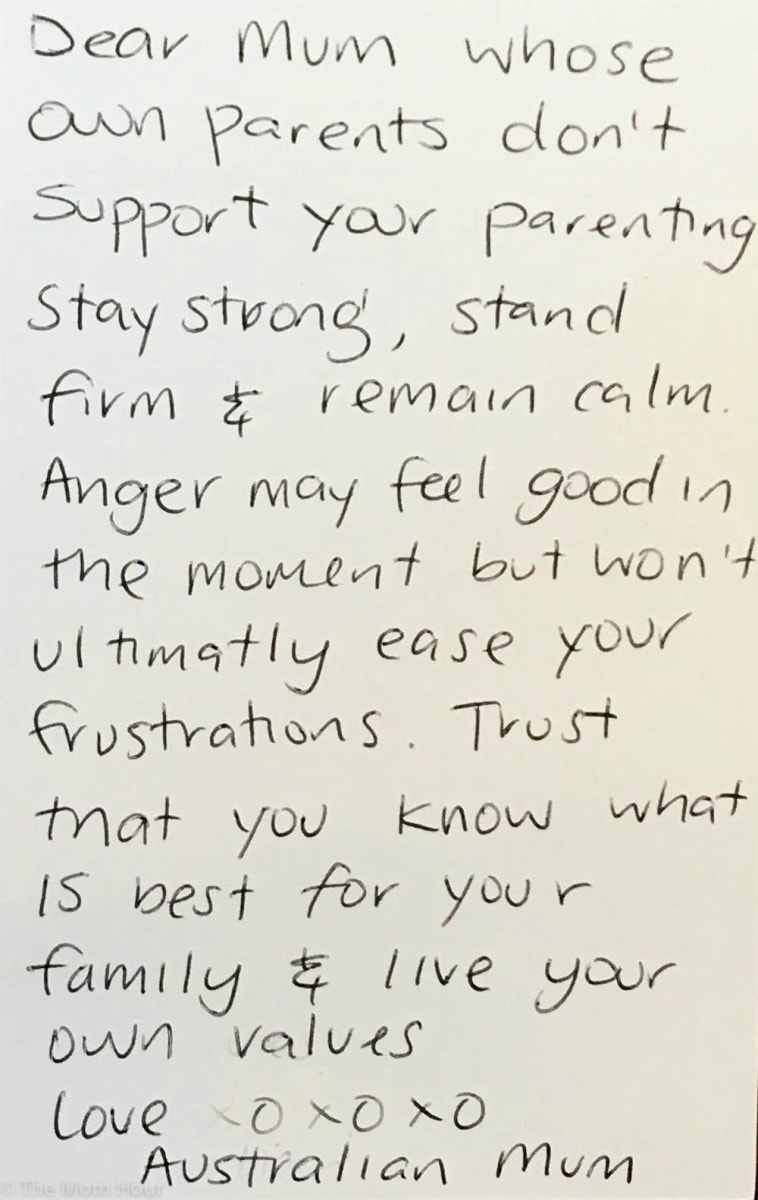 Dear Mum whose
own parents don't
support your parenting
Stay strong, stand
firm & remain calm.
Anger may feel good in
the moment but won't
ultimatly ease your
frustrations. Trust
that you know what
is best for your
family & live your
own values
Love xo xo xo
Australian Mum
© The Mom Hour